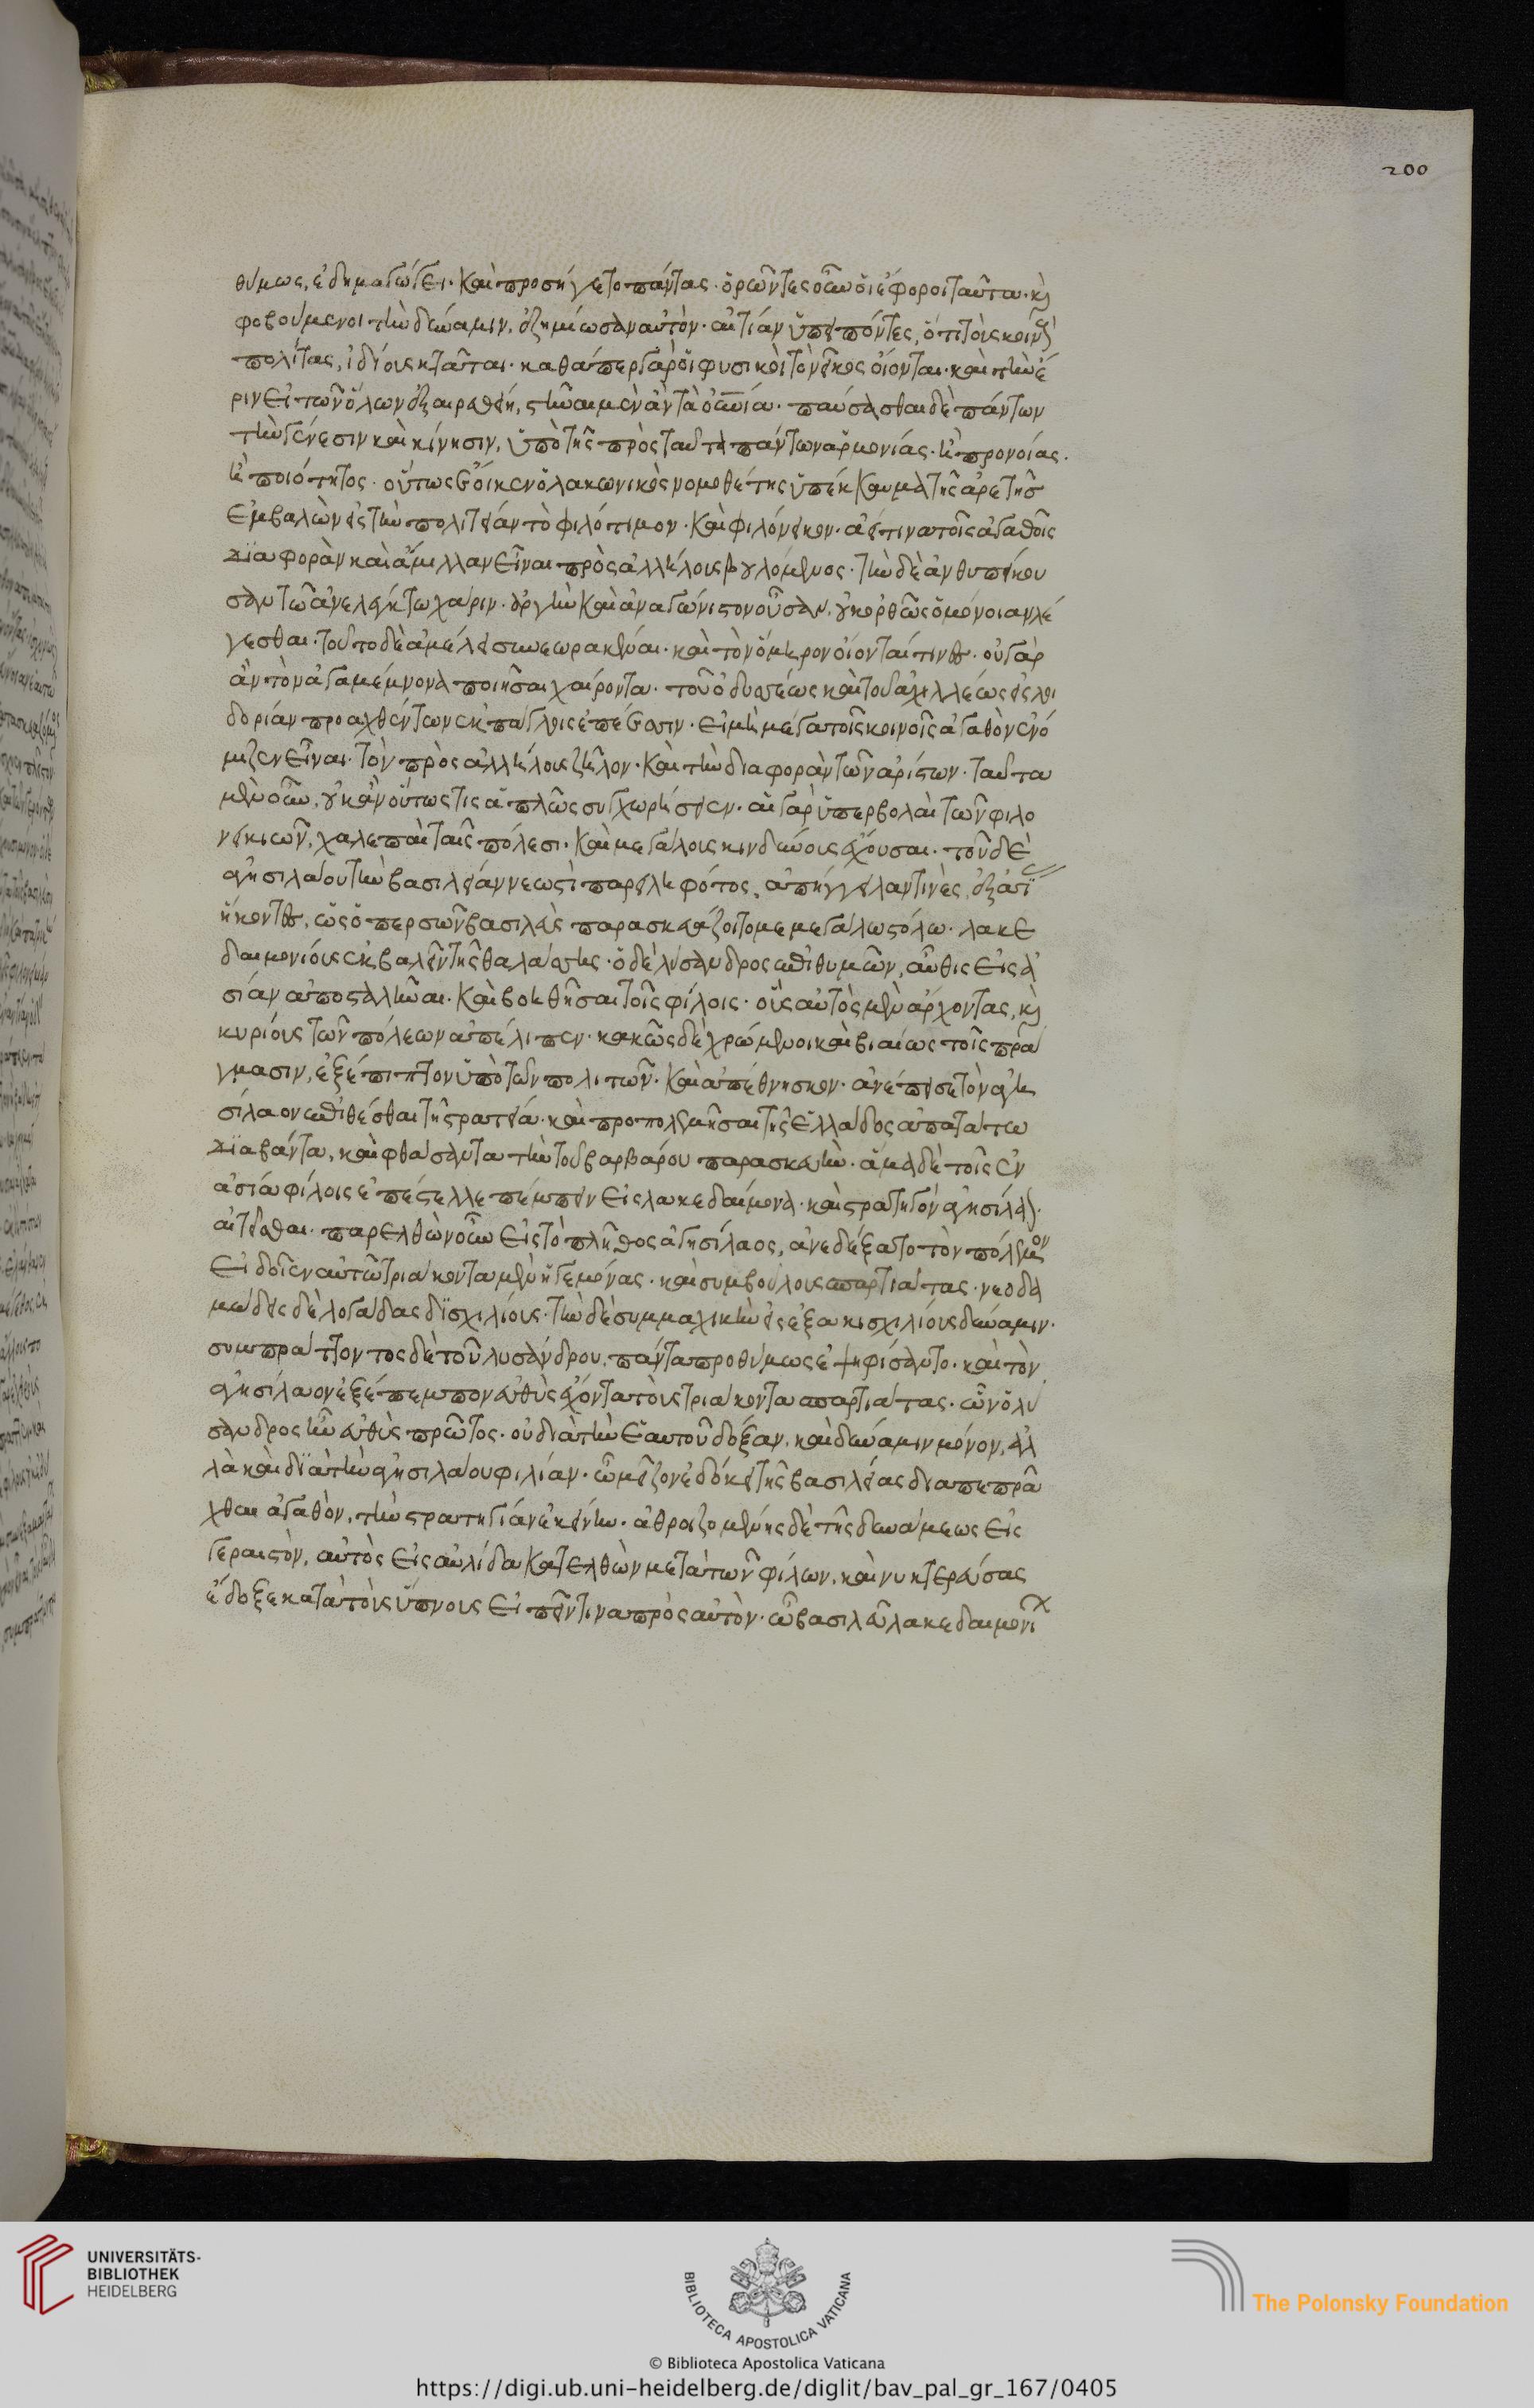 200
θύμως, ἐδημαγώγει· καὶ προσήγετο πάντας· ὁρῶντες οὖν οἱ ἔφοροι ταῦτα· κὶ
φοβούμενοι τὴν δύναμιν, ἐζημίωσαν αὐτὸν· αἰτίαν ὑπειπόντες, ὅτι τοὺς κοινοὺς
πολίτας, ἰδίους κτᾶται· καθάπερ γὰρ οἱ φυσικοὶ τὸ νεῖκος οἴονται· καὶ τὴν ἔ
ριν εἰ τῶν ὅλων ἐξαιρεθείη, στῆναι μὲν ἂν τὰ οὐράνια· παύσασθαι δὲ πάντων
τὴν γένεσιν καὶ κίνησιν, ὑπὸ τῆς πρὸς ταῦτα πάντων ἁρμονίας· ἢ προνοίας·
ἢ ποιότητος· οὕτως ἔοικεν ὁ λακωνικὸς νομοθέτης ὑπέκκαυμα τῆς ἀρετῆς
ἐμβαλὼν εἰς τὴν πολιτείαν τὸ φιλότιμον· καὶ φιλόνεικον· ἀεί τινα τοῖς ἀγαθοῖς
διαφορὰν καὶ ἅμιλλαν εἶναι πρὸς ἀλλήλους βουλόμενος· τὴν δὲ ἀνθυπείκου
σαν τῷ ἀνελέγκτῳ χάριν· ἀργὴν καὶ ἀναγώνιστον οὖσαν, οὐκ ὀρθῶς ὁμόνοιαν λέ
γεσθαι· τοῦτο δὲ ἀμέλει συνεωρακέναι· καὶ τὸν ὅμηρον οἴονταί τινες· οὐ γὰρ
ἂν τὸν ἀγαμέμνονα ποιῆσαι χαίροντα· τοῦ ὀδυσσέως καὶ τοῦ ἀχιλλέως εἰς λοι
δορίαν προαχθέντων ἐκπάγλοις ἐπέεσσιν· εἰ μὴ μέγα τοῖς κοινοῖς ἀγαθὸν ἐνό
μιζεν εἶναι· τὸν πρὸς ἀλλήλους ζῆλον· καὶ τὴν διαφορὰν τῶν ἀρίστων· ταῦτα
μὲν οὖν, οὐκ ἂν οὕτως τις ἁπλῶς συγχωρήσειεν· αἱ γὰρ ὑπερβολαὶ τῶν φιλο
νεικιῶν, χαλεπαὶ ταῖς πόλεσι· καὶ μεγάλους κινδύνους ἔχουσαι· τοῦ δὲ
ἀγησιλάου τὴν βασιλείαν νεωστὶ παρειληφότος, ἀπήγγελάν τινες, ἐξ ἀσί
ἥκοντες, ὡς ὁ περσῶν βασιλεὺς παρασκευάζοιτο με μεγάλω στόλω· λακε
δαιμονίους ἐκβαλεῖν τῆς θαλάσσης· ὁ δὲ λύσανδρος ἐπιθυμῶν, αὖθις εἰς ἀ
σίαν ἀποσταλῆναι· καὶ βοηθῆσαι τοῖς φίλοις· οὓς αὐτὸς μὲν ἄρχοντας, κὶ
κυρίους τῶν πόλεων ἀπέλιπεν· κακῶς δὲ χρώμενοι καὶ βιαίως τοῖς πρά
γμασιν, ἐξέπιπτον ὑπὸ τῶν πολιτῶν· καὶ ἀπέθνησκον· ἀνέπεισε τὸν ἀγη
σίλαον ἐπιθέσθαι τῇ στρατείᾳ· καὶ προπολεμῆσαι τῆς ἑλλάδος ἀπωτάτω
διαβάντα, καὶ φθάσαντα τὴν τοῦ βαρβάρου παρασκευὴν· ἅμα δὲ τοῖς ἐν
ἀσία φίλοις ἐπέστελλε πέμπειν εἰς λακεδαίμονα· καὶ στρατηγὸν ἀγησίλαον
αἰτεῖσθαι· παρελθὼν οὖν εἰς τὸ πλῆθος ἀγησίλαος, ἀνεδέξατο τὸν πόλεμον
εἰ δοῖεν αὐτῷ τριάκοντα μὲν ἡγεμόνας· καὶ συμβούλους σπαρτιάτας· νεοδα
μώδεις δὲ λογάδας δισχιλίους· τὴν δὲ συμμαχικὴν εἰς ἑξακισχιλίους δύναμιν·
συμπράττοντος δὲ τοῦ λυσάνδρου, πάντα προθύμως ἐψηφίσαντο· καὶ τὸν
ἀγησίλαον ἐξέπεμπον εὐθὺς ἔχοντα τοὺς τριάκοντα σπαρτιάτας· ὧν ὁ λύ
σανδρος ἦν εὐθὺς πρῶτος· οὐ διὰ τὴν ἑαυτοῦ δόξαν, καὶ δύναμιν μόνον, ἀλ
λὰ καὶ διὰ τὴν ἀγησιλάου φιλίαν· ᾧ μεῖζον ἐδόκει τῆς βασιλείας διαπεπρᾶ
χθαι ἀγαθὸν, τὴν στρατηγίαν ἐκείνην· ἀθροιζομένης δὲ τῆς δυνάμεως εἰς
γεραιστὸν, αὐτὸς εἰς αὐλίδα κατελθὼν μετὰ τῶν φίλων, καὶ νυκτερεύσας
ἔδοξε κατὰ τοὺς ὕπνους εἰπεῖν τινα πρὸς αὐτὸν· ὦ βασιλεῦ λακεδαιμονί
UNIVERSITÄTS-
BIBLIOTHEK
HEIDELBERG
BIBLIOTECA APOSTOLICA VATICANA
The Polonsky Foundation
© Biblioteca Apostolica Vaticana
https://digi.ub.uni-heidelberg.de/diglit/bav_pal_gr_167/0405